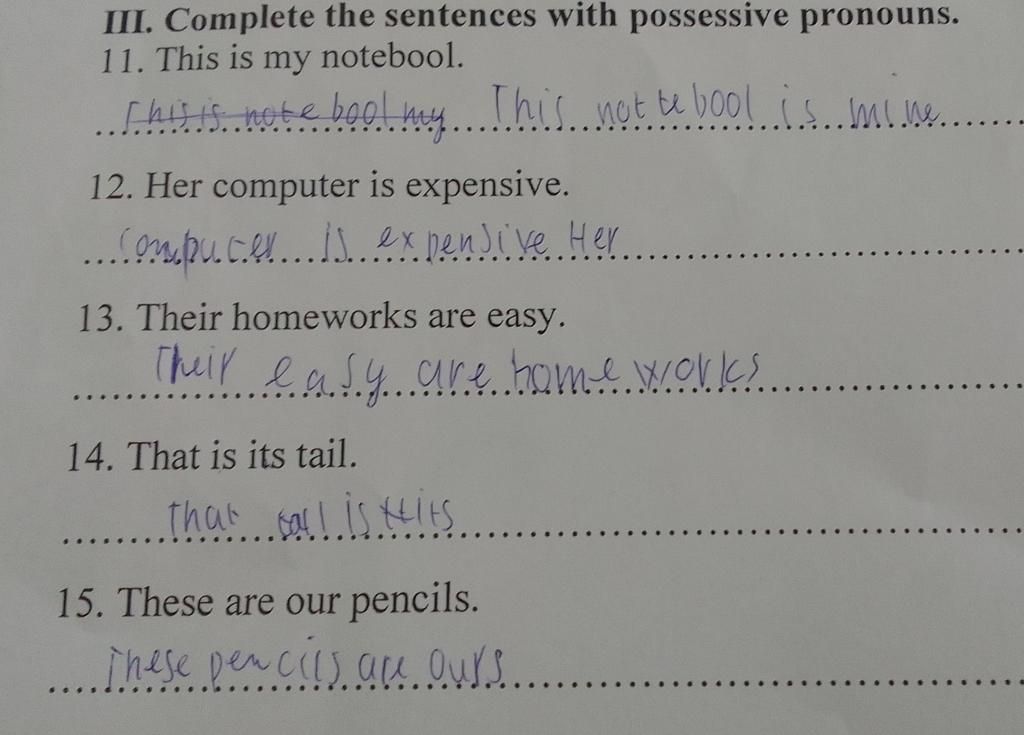 III. Complete the sentences with possessive pronouns.
11. This is my notebool.
This is note bool my This notebool is mine
12. Her computer is expensive.
Computer is expensive Her
13. Their homeworks are easy.
Their easy are homeworks
14. That is its tail.
that tail is its
15. These are our pencils.
These pencils are ours